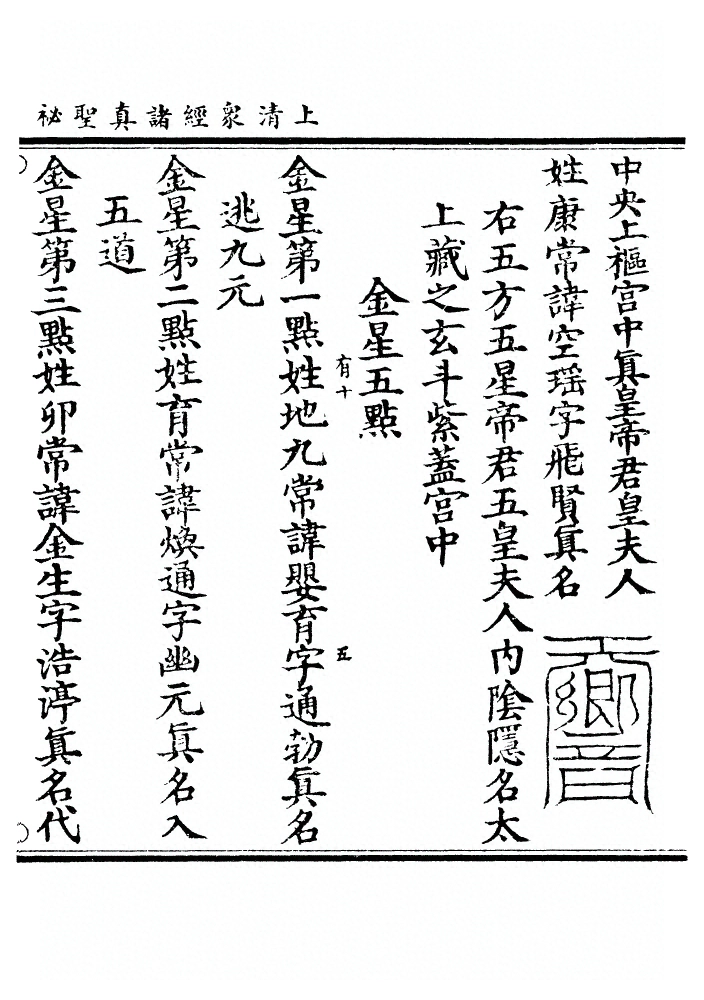 上清衆經諸真聖祕
中央上樞宮中眞皇帝君皇夫人
姓康常諱空瑶字飛賢眞名
右五方五星帝君五皇夫人內陰隱名太
上藏之玄斗紫蓋宮中
金星五點
有十
五
金星第一點姓地九常諱嬰育字通勃眞名
逃九元
金星第二點姓育常諱煥通字幽元眞名入
五道
金星第三點姓卯常諱金生字浩渟眞名代